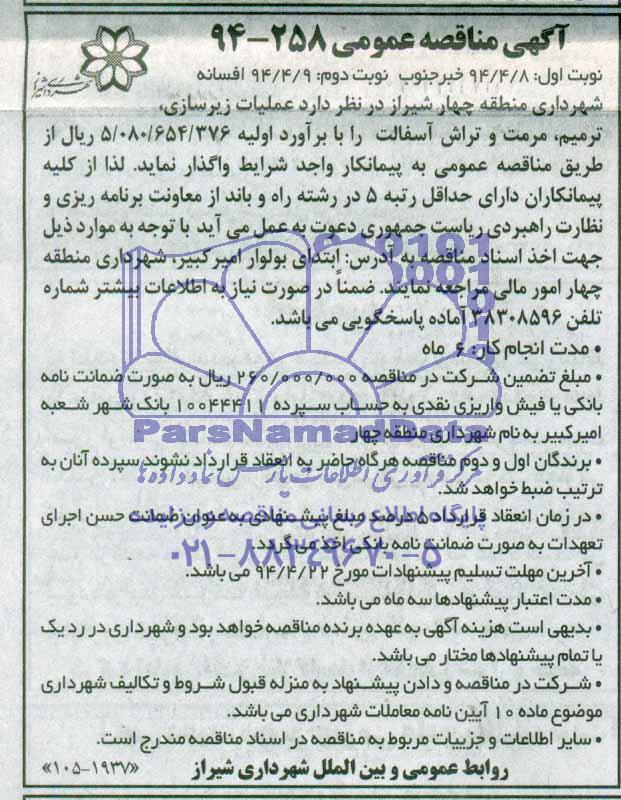 آگهی مناقصه عمومی ۲۵۸-۹۴
نوبت اول: ۹۴/۴/۸ خبرجنوب نوبت دوم: ۹۴/۴/۹ افسانه
شهرداری منطقه چهار شیراز در نظر دارد عملیات زیرسازی،
ترمیم، مرمت و تراش آسفالت را با برآورد اولیه ۵/۰۸۰/۶۵۴/۳۷۶ ریال از
طریق مناقصه عمومی به پیمانکار واجد شرایط واگذار نماید. لذا از کلیه
پیمانکاران دارای حداقل رتبه ۵ در رشته راه و باند از معاونت برنامه ریزی و
نظارت راهبردی ریاست جمهوری دعوت به عمل می آید با توجه به موارد ذیل
جهت اخذ اسناد مناقصه به آدرس: ابتدای بولوار امیرکبیر، شهرداری منطقه
چهار امور مالی مراجعه نمایند. ضمناً در صورت نیاز به اطلاعات بیشتر شماره
تلفن ۳۸۳۰۸۵۹۶ آماده پاسخگویی می باشد.
• مدت انجام کار: ۶ ماه
• مبلغ تضمین شرکت در مناقصه ۲۶۰/۰۰۰/۰۰۰ ریال به صورت ضمانت نامه
بانکی یا فیش واریزی نقدی به حساب سپرده ۱۰۰۴۴۴۱۱ بانک شهر شعبه
امیرکبیر به نام شهرداری منطقه چهار
ParsNamadData
• برندگان اول و دوم مناقصه هرگاه حاضر به انعقاد قرارداد نشوند سپرده آنان به
ترتیب ضبط خواهد شد.
مرکز فرآوری اطلاعات پارس نماد داده ها
• در زمان انعقاد قرارداد ۵ درصد مبلغ پیشنهادی به عنوان ضمانت حسن اجرای
تعهدات به صورت ضمانت نامه بانکی اخذ می گردد.
پایگاه اطلاع رسانی مناقصه و مزایده
۰۲۱-۸۸۳۴۹۶۷۰-۵
• آخرین مهلت تسلیم پیشنهادات مورخ ۹۴/۴/۲۲ می باشد.
• مدت اعتبار پیشنهادها سه ماه می باشد.
• بدیهی است هزینه آگهی به عهده برنده مناقصه خواهد بود و شهرداری در رد یک
یا تمام پیشنهادها مختار می باشد.
• شرکت در مناقصه و دادن پیشنهاد به منزله قبول شروط و تکالیف شهرداری
موضوع ماده ۱۰ آیین نامه معاملات شهرداری می باشد.
• سایر اطلاعات و جزییات مربوط به مناقصه در اسناد مناقصه مندرج است.
روابط عمومی و بین الملل شهرداری شیراز
«۱۰۵-۱۹۳۷»